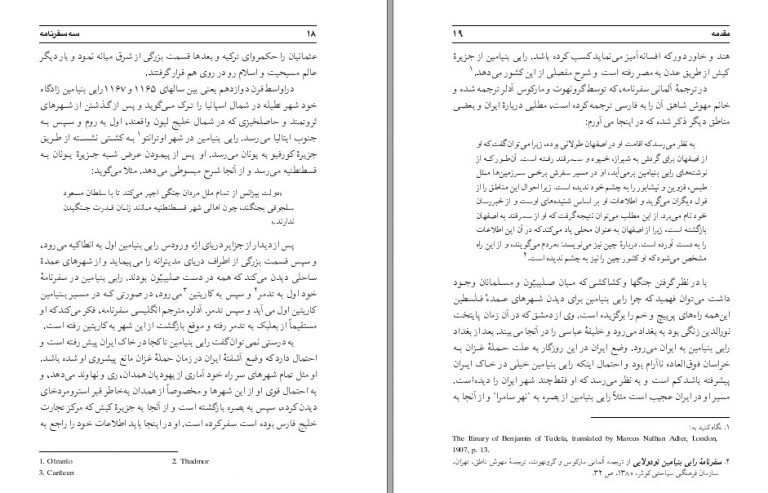 ۱۸ سه سفرنامه
عثمانیان را حکمروای ترکیه و بعدها قسمت بزرگی از شرق میانه نمود و بار دیگر
عالم مسیحیت و اسلام رو در روی هم قرار گرفتند.
در اواسط قرن دوازدهم یعنی بین سالهای ۱۱۶۵ و ۱۱۶۷ رابی بنیامین زادگاه
خود شهر طلیله در شمال اسپانیا را ترک می‌گوید و پس از گذشتن از شهرهای
ثروتمند و حاصلخیزی که در شمال خلیج لیون واقعند، اول به روم و سپس به
جنوب ایتالیا می‌رسد. رابی بنیامین در شهر اوترانتو۱ به کشتی نشسته از طریق
جزیرهٔ کورفیو به یونان می‌رسد. او پس از پیمودن عرض شبه جزیرهٔ یونان به
قسطنطنیه می‌رسد و از آنجا شرح مبسوطی می‌دهد. مثلاً می‌گوید:
«دولت بیزانس از تمام ملل مردان جنگی اجیر می‌کند تا با سلطان مسعود
سلجوقی بجنگند، چون اهالی شهر قسطنطنیه مانند زنان قدرت جنگیدن
ندارند.»
پس از دیدار از جزایر دریای اژه و رودس رابی بنیامین اول به انطاکیه می‌رود،
و سپس قسمت بزرگی از اطراف دریای مدیترانه را می‌پیماید و از شهرهای عمدهٔ
ساحلی دیدن می‌کند که همه در دست صلیبیون بودند. رابی بنیامین در سفرنامهٔ
خود اول به تدمر۲ و سپس به کاریتین۳ می‌رود، در صورتی که در مسیر بنیامین
کاریتین اول می‌آید و سپس تدمر. آدلر، مترجم انگلیسی سفرنامه، فکر می‌کند که او
مستقیماً از بعلبک به تدمر رفته و موقع بازگشت از این شهر به کاریتین رفته است.
به درستی نمی‌توان گفت رابی بنیامین تا کجا در خاک ایران پیش رفته است و
احتمال دارد که وضع آشفتهٔ ایران در زمان حملهٔ غزان مانع پیشروی او شده باشد.
او مثل تمام شهرهای سر راه خود آماری از یهودیان همدان، ری و نهاوند می‌دهد، و
به احتمال قوی او از این شهرها و مخصوصاً از همدان به‌خاطر قبر استرومردخای
دیدن کرده، سپس به بصره بازگشته است و از آنجا به جزیرهٔ کیش که مرکز تجارت
خلیج فارس بوده است سفر کرده است. او در اینجا باید اطلاعات خود را راجع به
1. Otranto 2. Thadmor
3. Cariteen
مقدمه ۱۹
هند و خاور دور که افسانه‌آمیز می‌نماید کسب کرده باشد. رابی بنیامین از جزیرهٔ
کیش از طریق عدن به مصر رفته است و شرح مفصلی از این کشور می‌دهد.۱
در ترجمهٔ آلمانی سفرنامه، که توسط گرونهوت و مارکوس آدلر ترجمه شده و
خانم مهوش شاهق آن را به فارسی ترجمه کرده است، مطلبی دربارهٔ ایران و بعضی
مناطق دیگر ذکر شده که در اینجا می‌آورم:
به نظر می‌رسد که اقامت او در اصفهان طولانی بوده، زیرا می‌توان گفت که او
از اصفهان برای گردش به شیراز، خیوه و سمرقند رفته است. آن‌طور که از
نوشته‌های رابی بنیامین برمی‌آید، او در مسیر سفرش برخی سرزمین‌ها مثل
طبس، قزوین و نیشابور را به چشم خود ندیده است. زیرا احوال این مناطق را از
قول دیگران می‌گوید و اطلاعات او بر اساس شنیده‌های اوست و از خبررسان
خود نام می‌برد. از این مطلب می‌توان نتیجه گرفت که او از سمرقند به اصفهان
بازگشته است، زیرا از اصفهان به عنوان محلی یاد می‌کند که در آن این اطلاعات
را به دست آورده است. دربارهٔ چین نیز می‌نویسد: «مردم می‌گویند» و از این راه
مشخص می‌شود که او کشور چین را نیز به چشم ندیده است.۲
با در نظر گرفتن جنگها و کشاکشی که میان صلیبیّون و مسلمانان وجود
داشت می‌توان فهمید که چرا رابی بنیامین برای دیدن شهرهای عمدهٔ فلسطین
این‌همه راه‌های پرپیچ و خم را برگزیده است. وی از دمشق که در آن زمان پایتخت
نورالدین زنگی بود به بغداد می‌رود و خلیفهٔ عباسی را در آنجا می‌بیند. بعد از بغداد
رابی بنیامین به ایران می‌رود. وضع ایران در این روزگار به علت حملهٔ غزان به
خراسان فوق‌العاده ناآرام بود و احتمال اینکه رابی بنیامین خیلی در خاک ایران
پیشرفته باشد کم است و به نظر می‌رسد که او فقط چند شهر ایران را دیده است.
مسیر او در ایران عجیب است مثلاً رابی بنیامین از بصره به «نهر سامرا» و از آنجا به
۱. نگاه کنید به:
The Itinary of Benjamin of Tudela, translated by Marcus Nathan Adler, London,
1907, p. 13.
۲. سفرنامهٔ رابی بنیامین تودولایی از ترجمه آلمانی مارکوس و گرونهوت، ترجمهٔ مهوش ناطق، تهران،
سازمان فرهنگی سیاحتی کوثر، ۱۳۸۰، ص ۳۲.